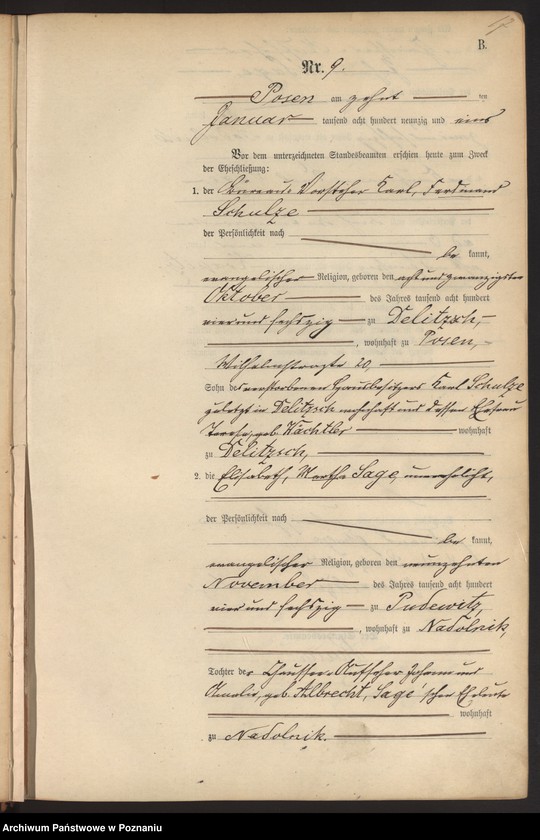 B.
Nr. 9.
Posen am zehnten
Januar tausend acht hundert neunzig und eins
Vor dem unterzeichneten Standesbeamten erschien heute zum Zweck
der Eheschließung:
1. der Büreau-Vorsteher Karl, Ferdinand
Schulze
der Persönlichkeit nach
be kannt,
evangelischer Religion, geboren den acht und zwanzigsten
Oktober des Jahres tausend acht hundert
vier und sechszig zu Delitzsch,
, wohnhaft zu Posen,
Wilhelmstraße 20,
Sohn des verstorbenen Hausbesitzers Karl Schulze
zuletzt in Delitzsch wohnhaft und dessen Ehefrau
geb. Wächtler wohnhaft
zu Delitzsch,
2. die Elisabeth, Martha Sage, unverehelicht,
der Persönlichkeit nach
be kannt,
evangelischer Religion, geboren den neunzehnten
November des Jahres tausend acht hundert
vier und sechszig zu Pudewitz,
, wohnhaft zu Nadolnik,
Tochter der Chaussee-Aufseher Johann und
Amalie, geb. Albrecht, Sage'schen Eheleute
wohnhaft
zu Nadolnik.
Archiwum Państwowe w Poznaniu